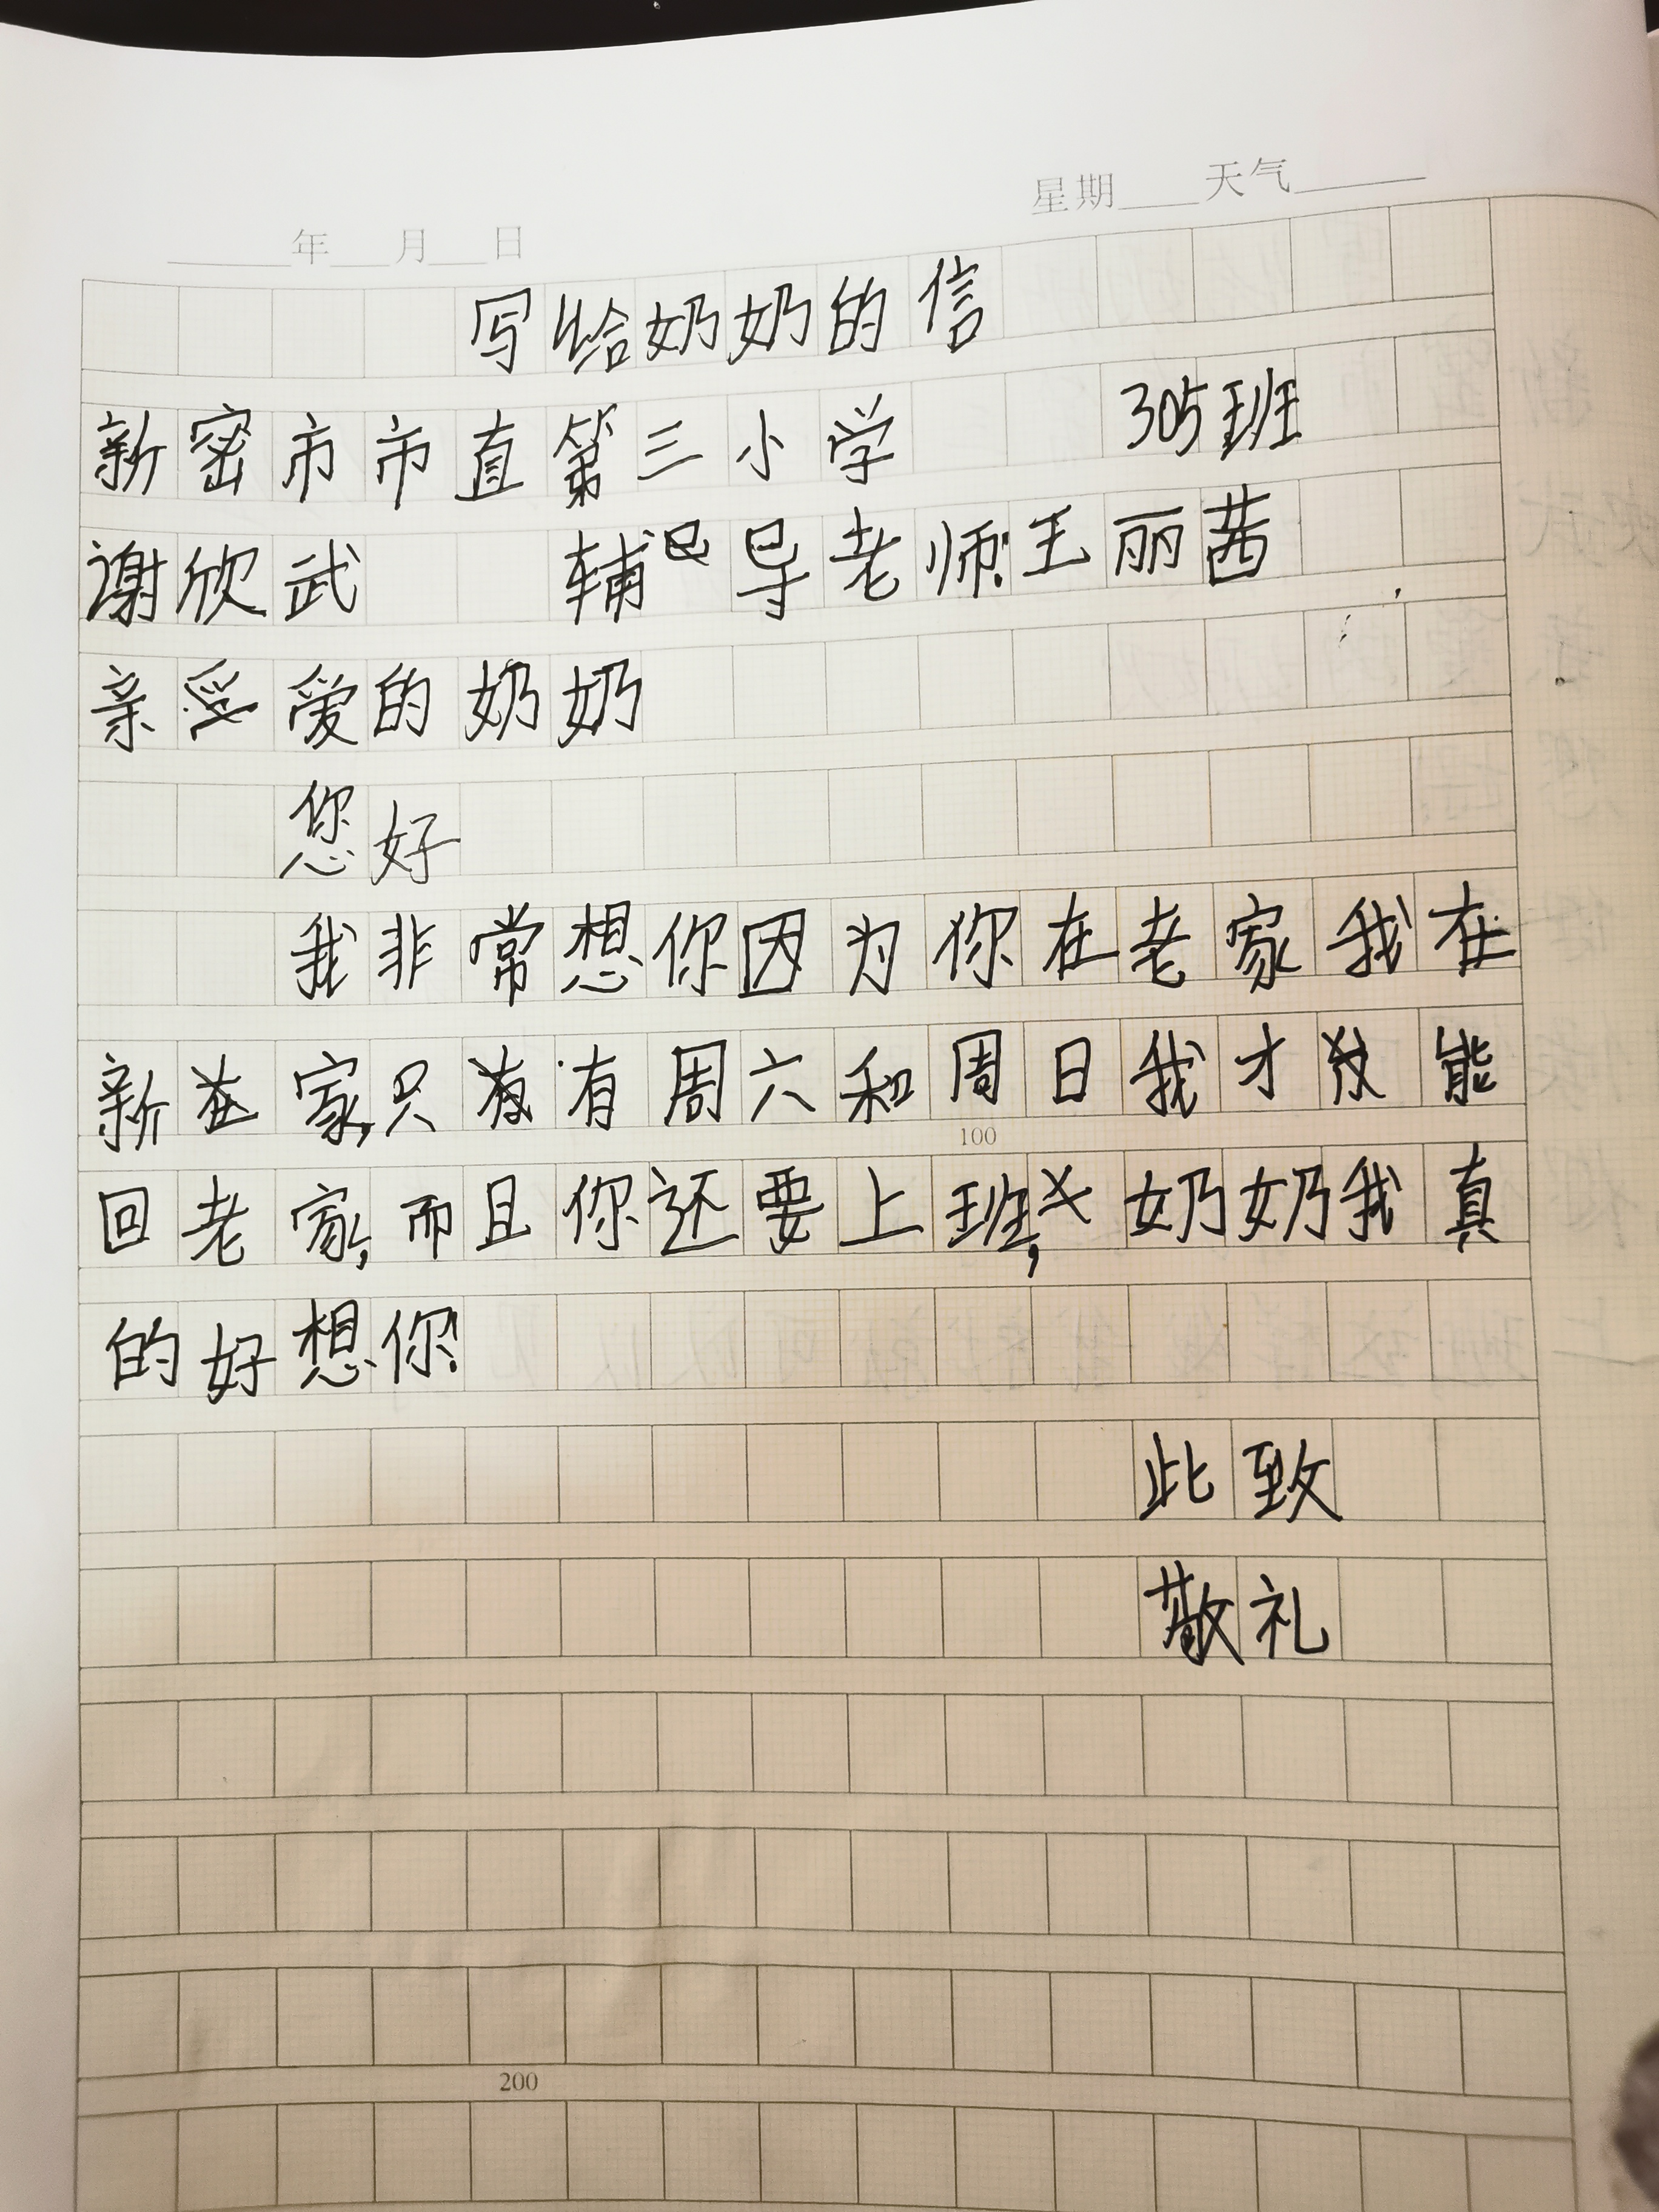 星期____天气____
____年__月__日
写给奶奶的信
新密市市直第三小学 305班
谢欣武 辅导老师:王丽茜
亲爱的奶奶
您好
我非常想你因为你在老家我在
新家,只有周六和周日我才能
100
回老家,而且你还要上班,奶奶奶我真
的好想你!
此致
敬礼
200